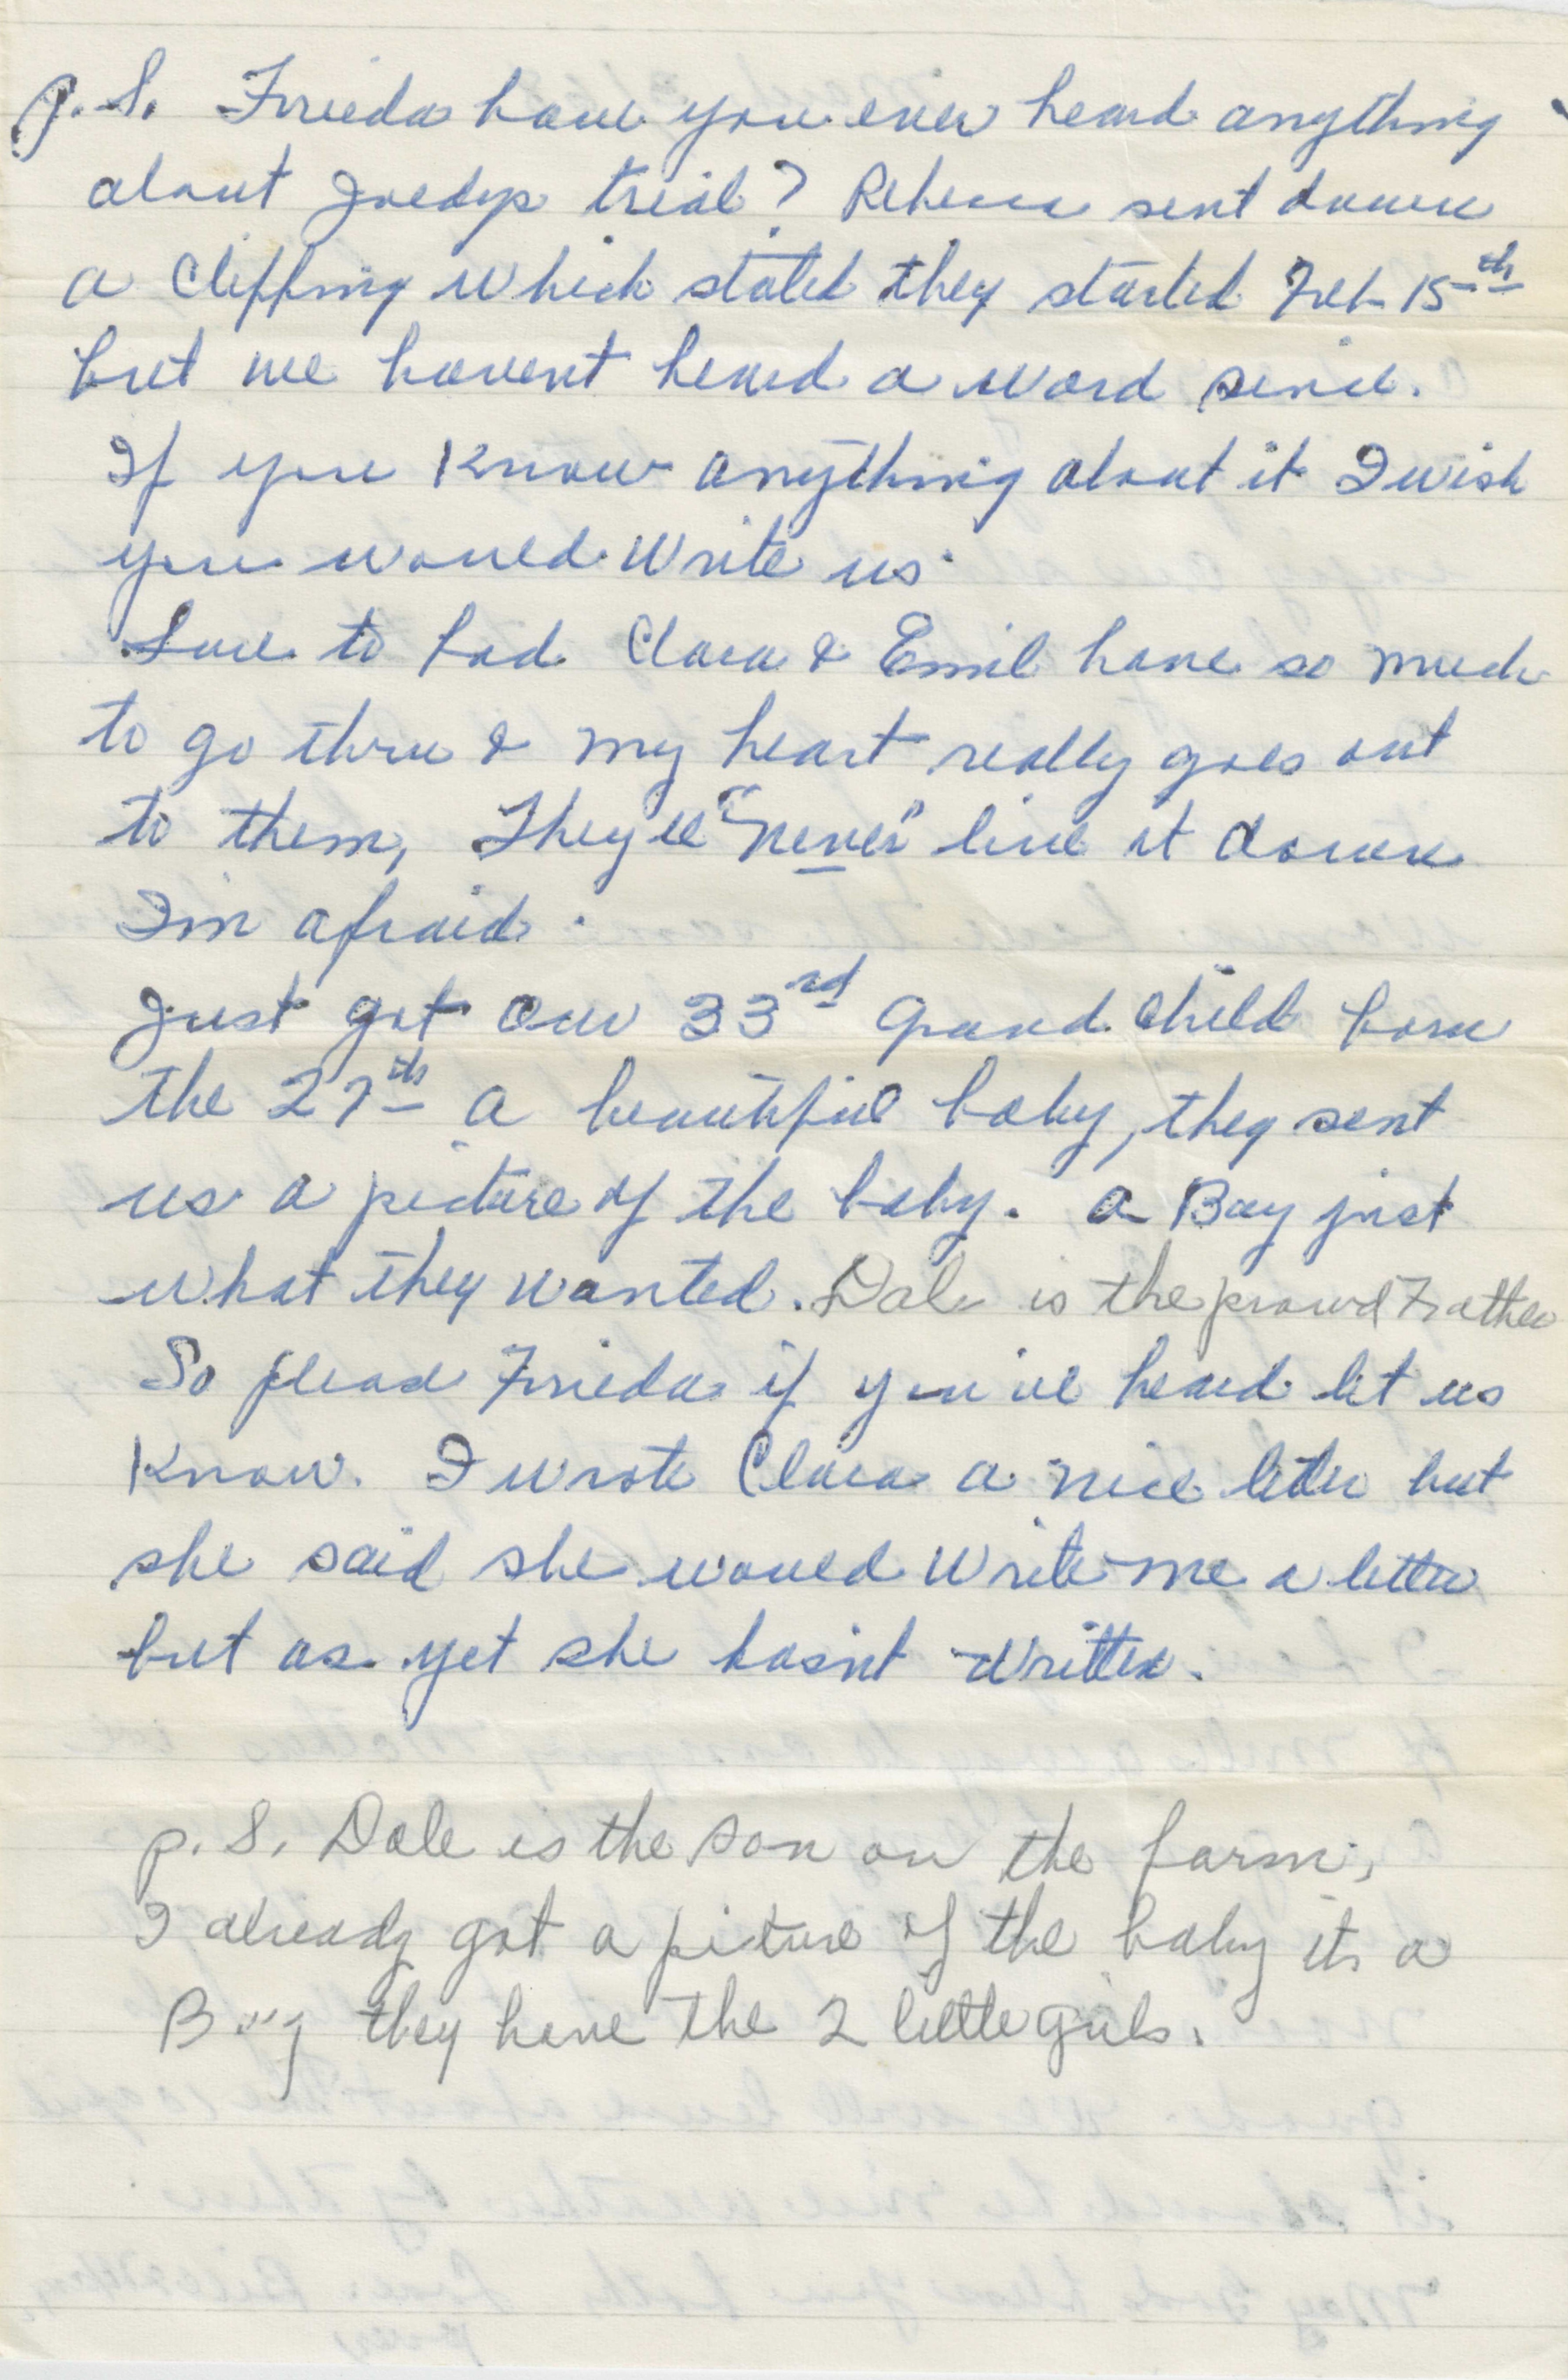 P.S. Frieda have you ever heard anything
about Joedys trial? Rebecca sent down
a Clipping which stated they started Feb 15th
but we havent heard a word since.
If you Know anything about it I wish
you would Write us.
Sure to bad Clara & Emil have so much
to go thru & my heart really goes out
to them, They'll "never" live it down
I'm afraid.
Just got our 33rd Grand child born
the 27th a beautiful baby, they sent
us a picture of the baby. a Boy just
what they wanted. Dale is the proud Father
So please Frieda if you've heard let us
Know. I wrote Clara a nice letter but
she said she would Write me a letter
but as yet she hasn't written.
p.S. Dale is the son on the farm,
I already got a picture of the baby its a
Boy they have the 2 little girls.